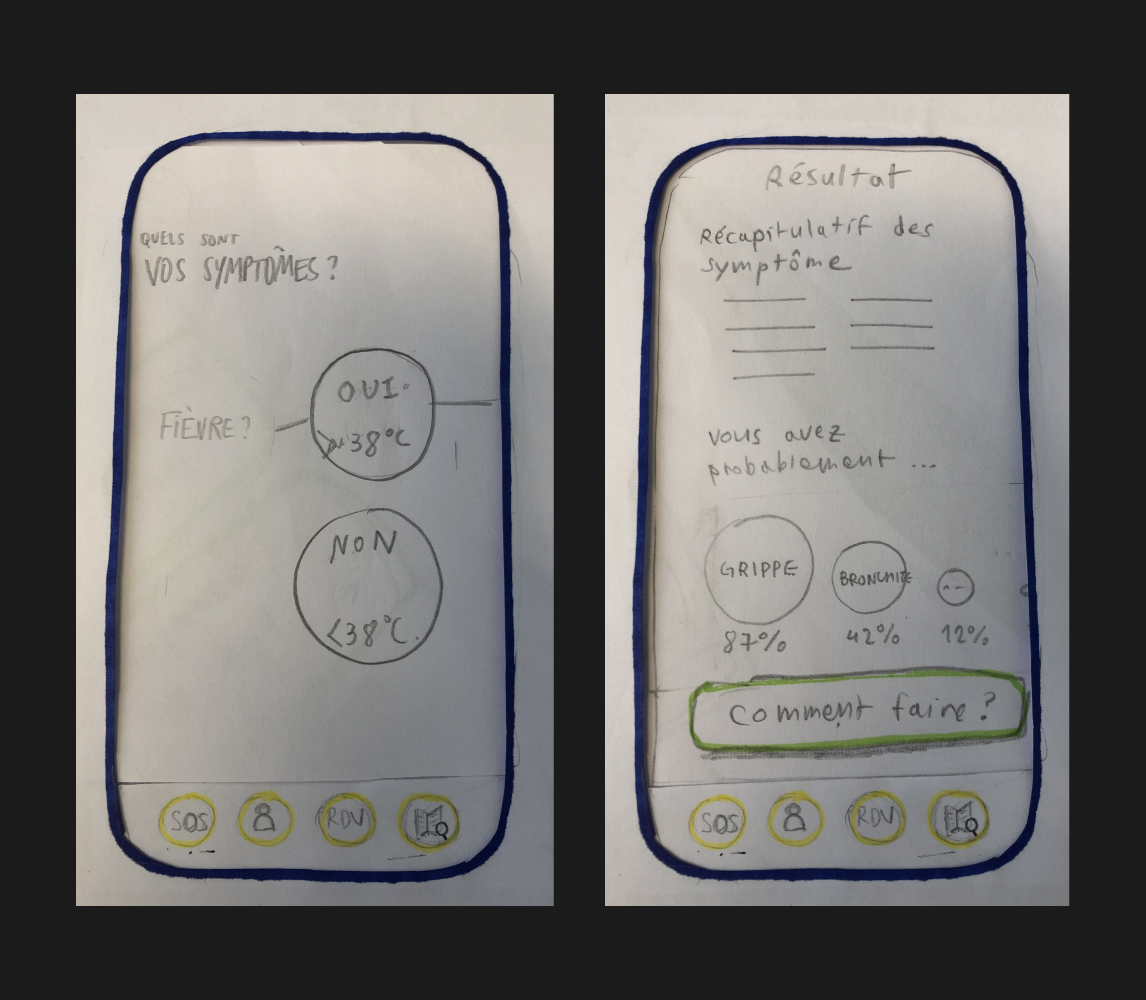 QUELS SONT
VOS SYMPTÔMES ?
FIÈVRE ?
OUI.
38°C
NON
<38°C.
SOS
RDV
Résultat
Récapitulatif des
symptôme
vous avez
probablement ...
GRIPPE
BRONCHITE
87%
42%
12%
Comment faire ?
SOS
RDV